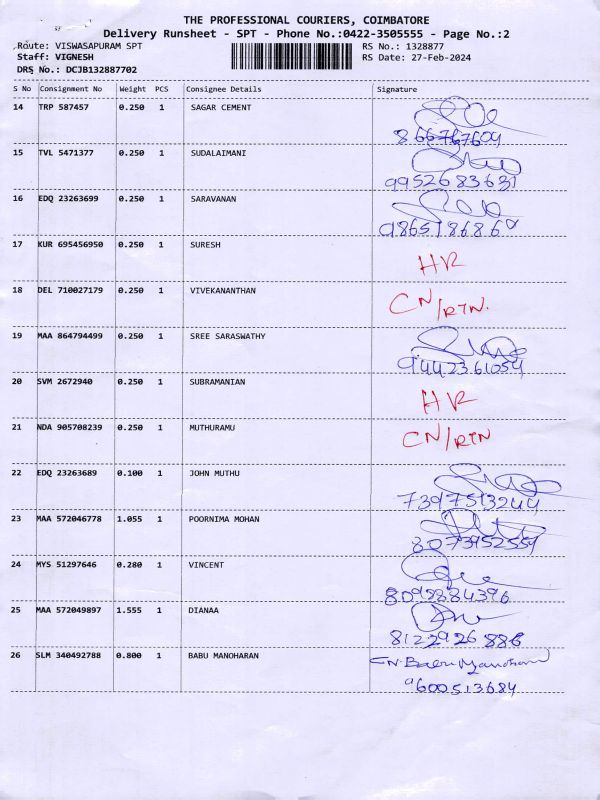 THE PROFESSIONAL COURIERS, COIMBATORE
Delivery Runsheet - SPT - Phone No.:0422-3505555 - Page No.:2
Route: VISWASAPURAM SPT RS No.: 1328877
Staff: VIGNESH RS Date: 27-Feb-2024
DRS No.: DCJB132887702
S No Consignment No Weight PCS Consignee Details Signature
14 TRP 587457 0.250 1 SAGAR CEMENT
866767609
15 TVL 5471377 0.250 1 SUDALAIMANI
9952683631
16 EDQ 23263699 0.250 1 SARAVANAN
17 KUR 695456950 0.250 1 SURESH
HR
18 DEL 710027179 0.250 1 VIVEKANANTHAN
CN/RTN.
19 MAA 864794499 0.250 1 SREE SARASWATHY
9442361054
20 SVM 2672940 0.250 1 SUBRAMANIAN
HR
21 NDA 905708239 0.250 1 MUTHURAMU
CN/RTN
22 EDQ 23263689 0.100 1 JOHN MUTHU
7397513244
23 MAA 572046778 1.055 1 POORNIMA MOHAN
8073152554
24 MYS 51297646 0.280 1 VINCENT
25 MAA 572049897 1.555 1 DIANAA
8122926886
26 SLM 340492788 0.800 1 BABU MANOHARAN
CN. Babu Manoharan
9600513684